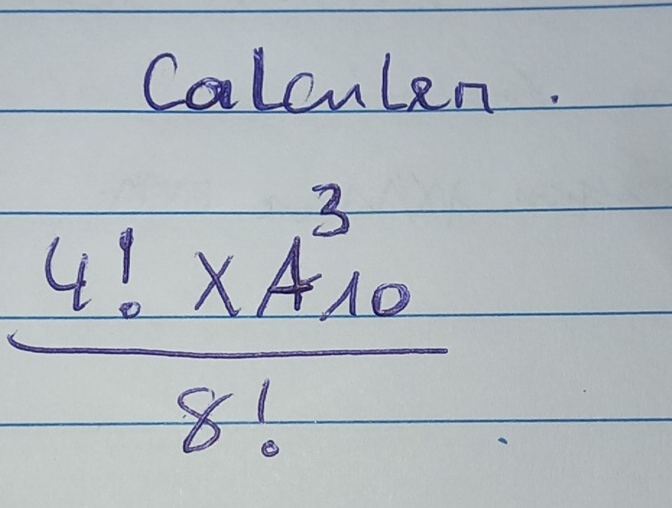 Calculer.
4! × A³₁₀
8!